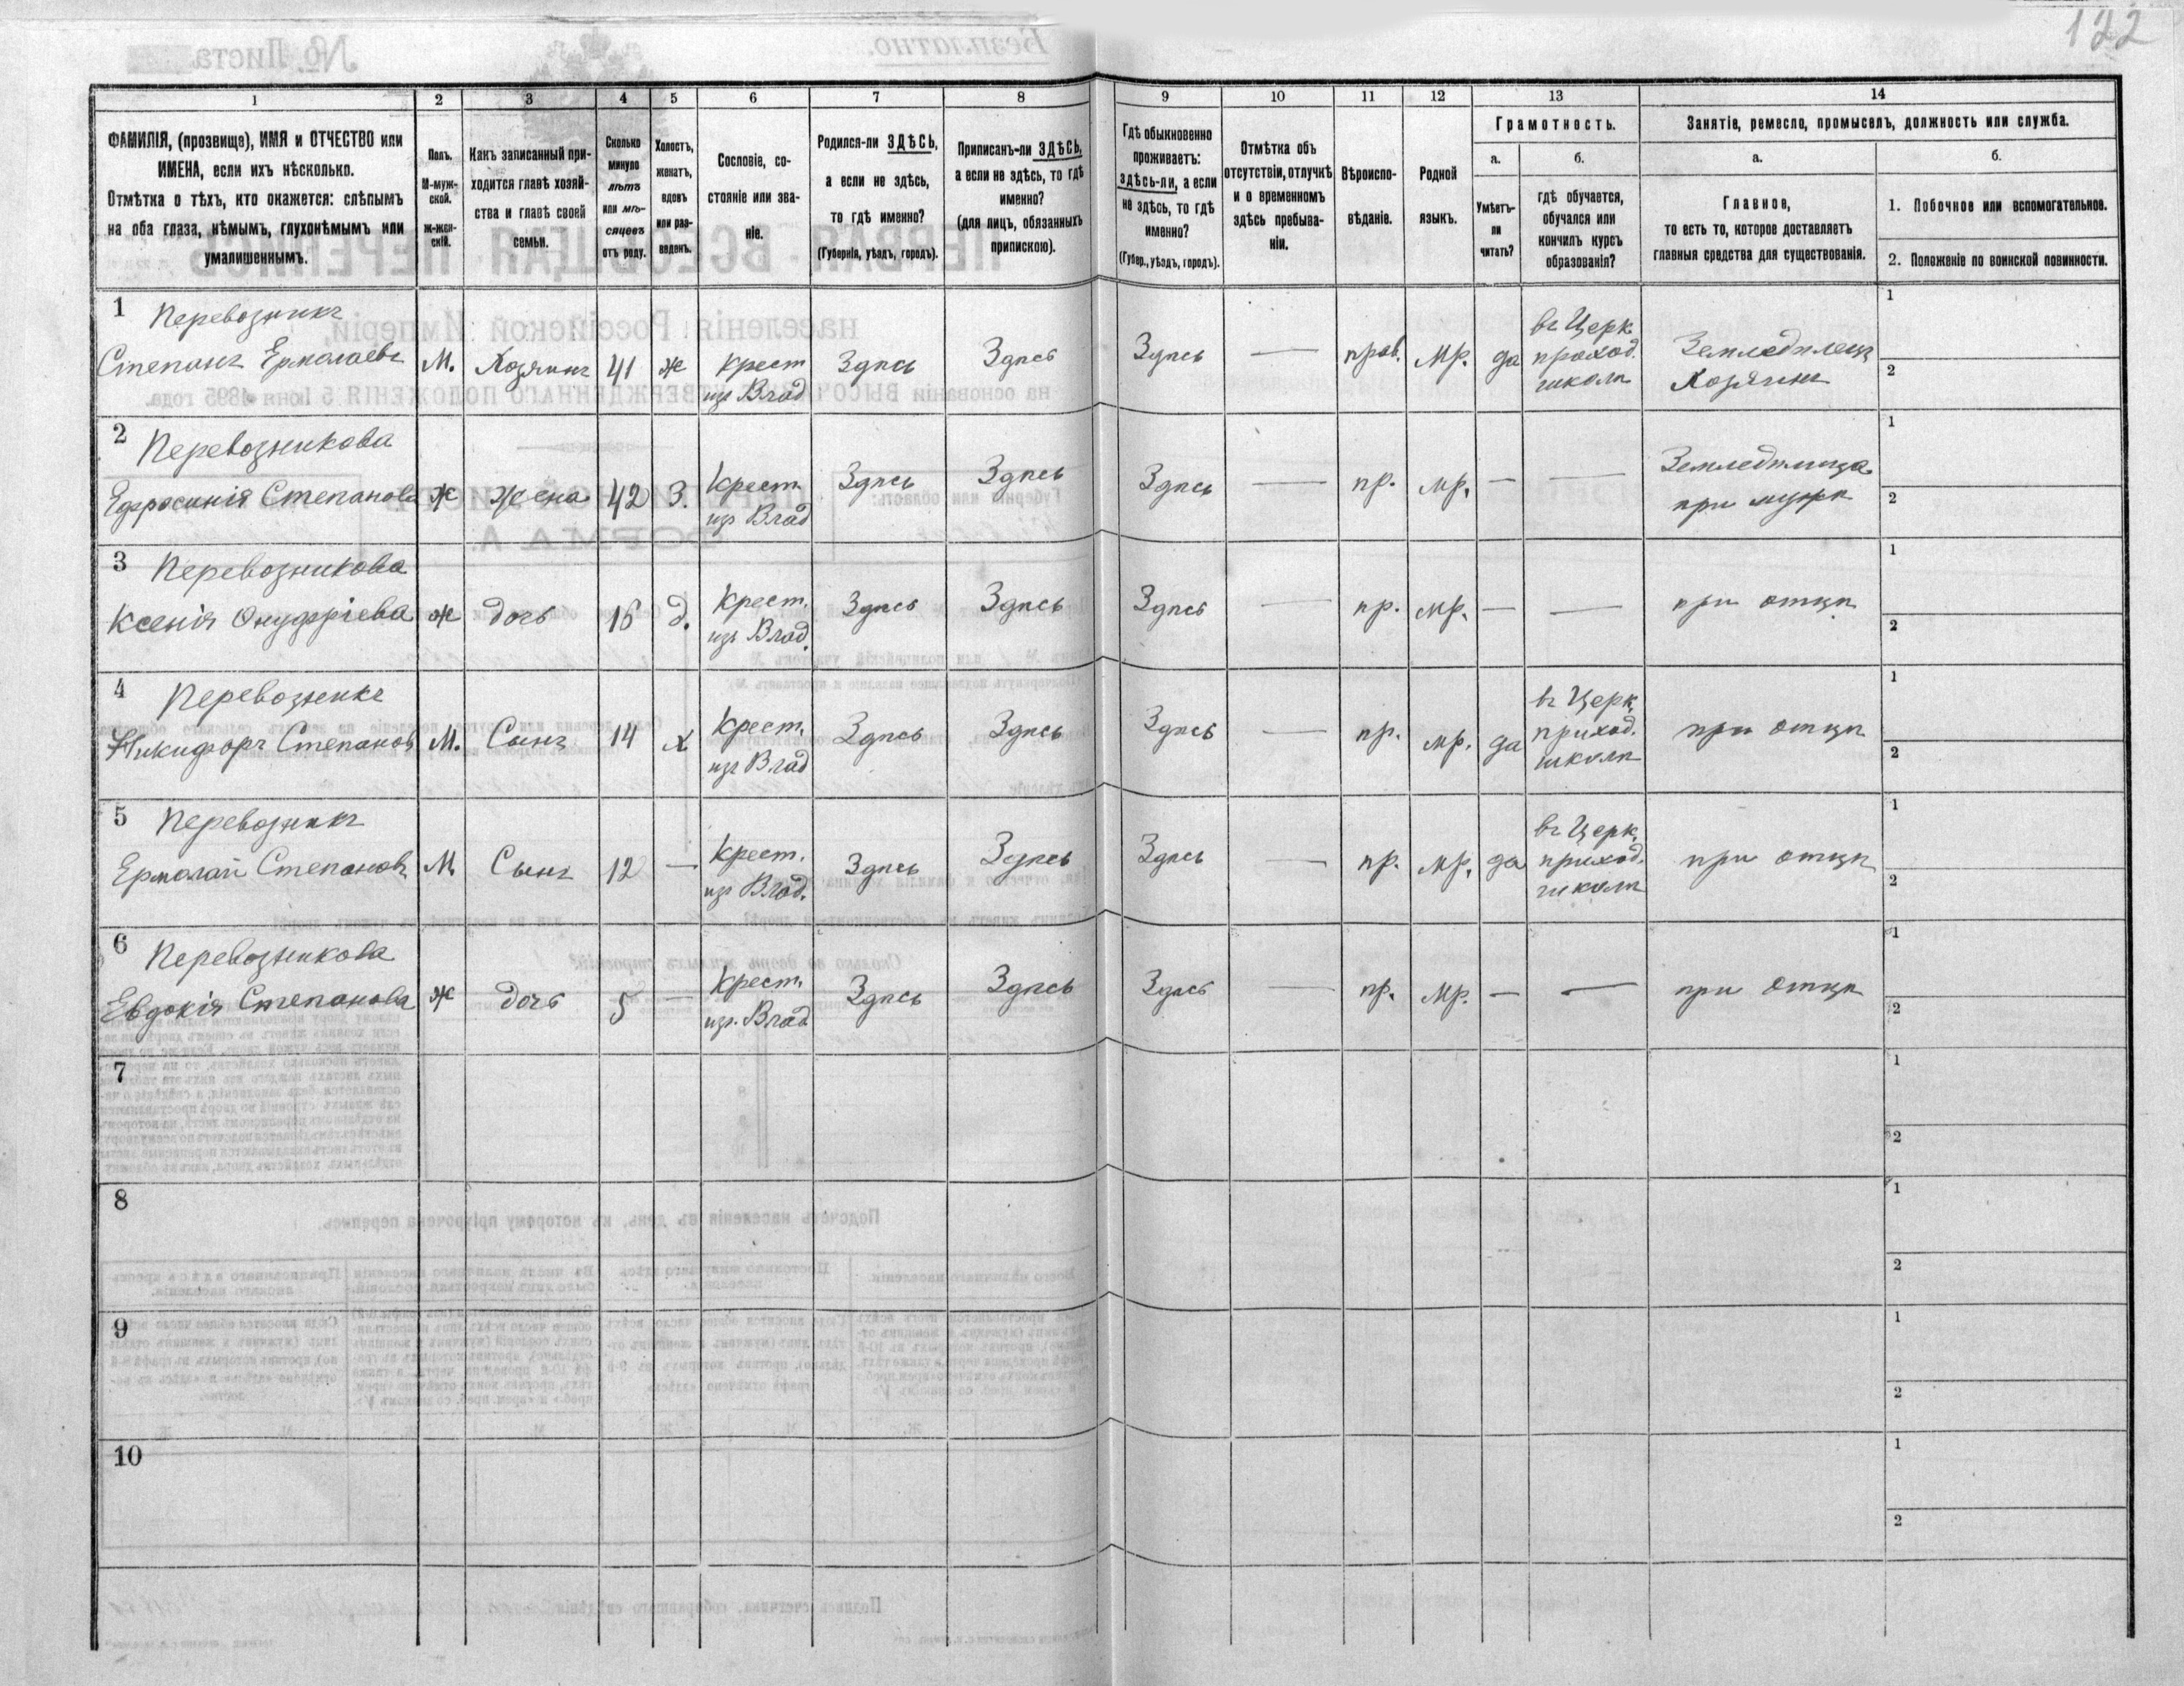 122
1
2
3
4
5
6
7
8
9
10
11
12
13
14
ФАМИЛІЯ, (прозвище), ИМЯ и ОТЧЕСТВО или
ИМЕНА, если ихъ нѣсколько.
Отмѣтка о тѣхъ, кто окажется: слѣпымъ
на оба глаза, нѣмымъ, глухонѣмымъ или
умалишеннымъ.
Полъ.
М-муж-
ской.
Ж-жен-
скій.
Какъ записанный при-
ходится главѣ хозяй-
ства и главѣ своей
семьи.
Сколько
минуло
лѣтъ
или мѣ-
сяцевъ
отъ роду.
Холостъ,
женатъ,
вдовъ
или раз-
веденъ.
Сословіе, со-
стояніе или зва-
ніе.
Родился-ли ЗДѢСЬ,
а если не здѣсь,
то гдѣ именно?
(Губернія, уѣздъ, городъ).
Приписанъ-ли ЗДѢСЬ,
а если не здѣсь, то гдѣ
именно?
(для лицъ, обязанныхъ
припискою).
Гдѣ обыкновенно
проживаетъ:
здѣсь-ли, а если
не здѣсь, то гдѣ
именно?
(Губер., уѣздъ, городъ).
Отмѣтка объ
отсутствіи, отлучкѣ
и о временномъ
здѣсь пребыва-
ніи.
Вѣроиспо-
вѣданіе.
Родной
языкъ.
Грамотность.
а.
Умѣетъ-
ли
читать?
б.
гдѣ обучается,
обучался или
кончилъ курсъ
образованія?
Занятіе, ремесло, промыселъ, должность или служба.
а.
Главное,
то есть то, которое доставляетъ
главныя средства для существованія.
б.
1. Побочное или вспомогательное.
2. Положеніе по воинской повинности.
1 Перевозникъ
Степанъ Ермолаевъ
М. Хозяинъ 41 ж
Крест
изъ Влад
Здѣсь Здѣсь Здѣсь — прав. мр. да
въ Церк.
приход.
школѣ
Земледѣлецъ
Хозяинъ
1
2
2 Перевозникова
Ефросинія Степанова
ж жена 42 З.
Крест.
изъ Влад
Здѣсь Здѣсь Здѣсь — пр. мр. — —
Земледѣлица
при мужѣ
1
2
3 Перевозникова
Ксенія Онуфріева
ж дочь 16 д.
Крест.
изъ Влад.
Здѣсь Здѣсь Здѣсь — пр. мр. — —
при отцѣ
1
2
4 Перевозникъ
Никифоръ Степановъ
М. Сынъ 14 х
Крест.
изъ Влад
Здѣсь Здѣсь Здѣсь — пр. мр. да
въ Церк.
приход.
школѣ
при отцѣ
1
2
5 Перевозникъ
Ермолай Степановъ
М Сынъ 12 —
Крест.
изъ Влад.
Здѣсь Здѣсь Здѣсь — пр. мр. да
въ Церк.
приход.
школѣ
при отцѣ
1
2
6 Перевозникова
Евдокія Степанова
ж дочь 5 —
Крест.
изъ. Влад
Здѣсь Здѣсь Здѣсь — пр. мр. — —
при отцѣ
1
2
7
1
2
8
1
2
9
1
2
10
1
2